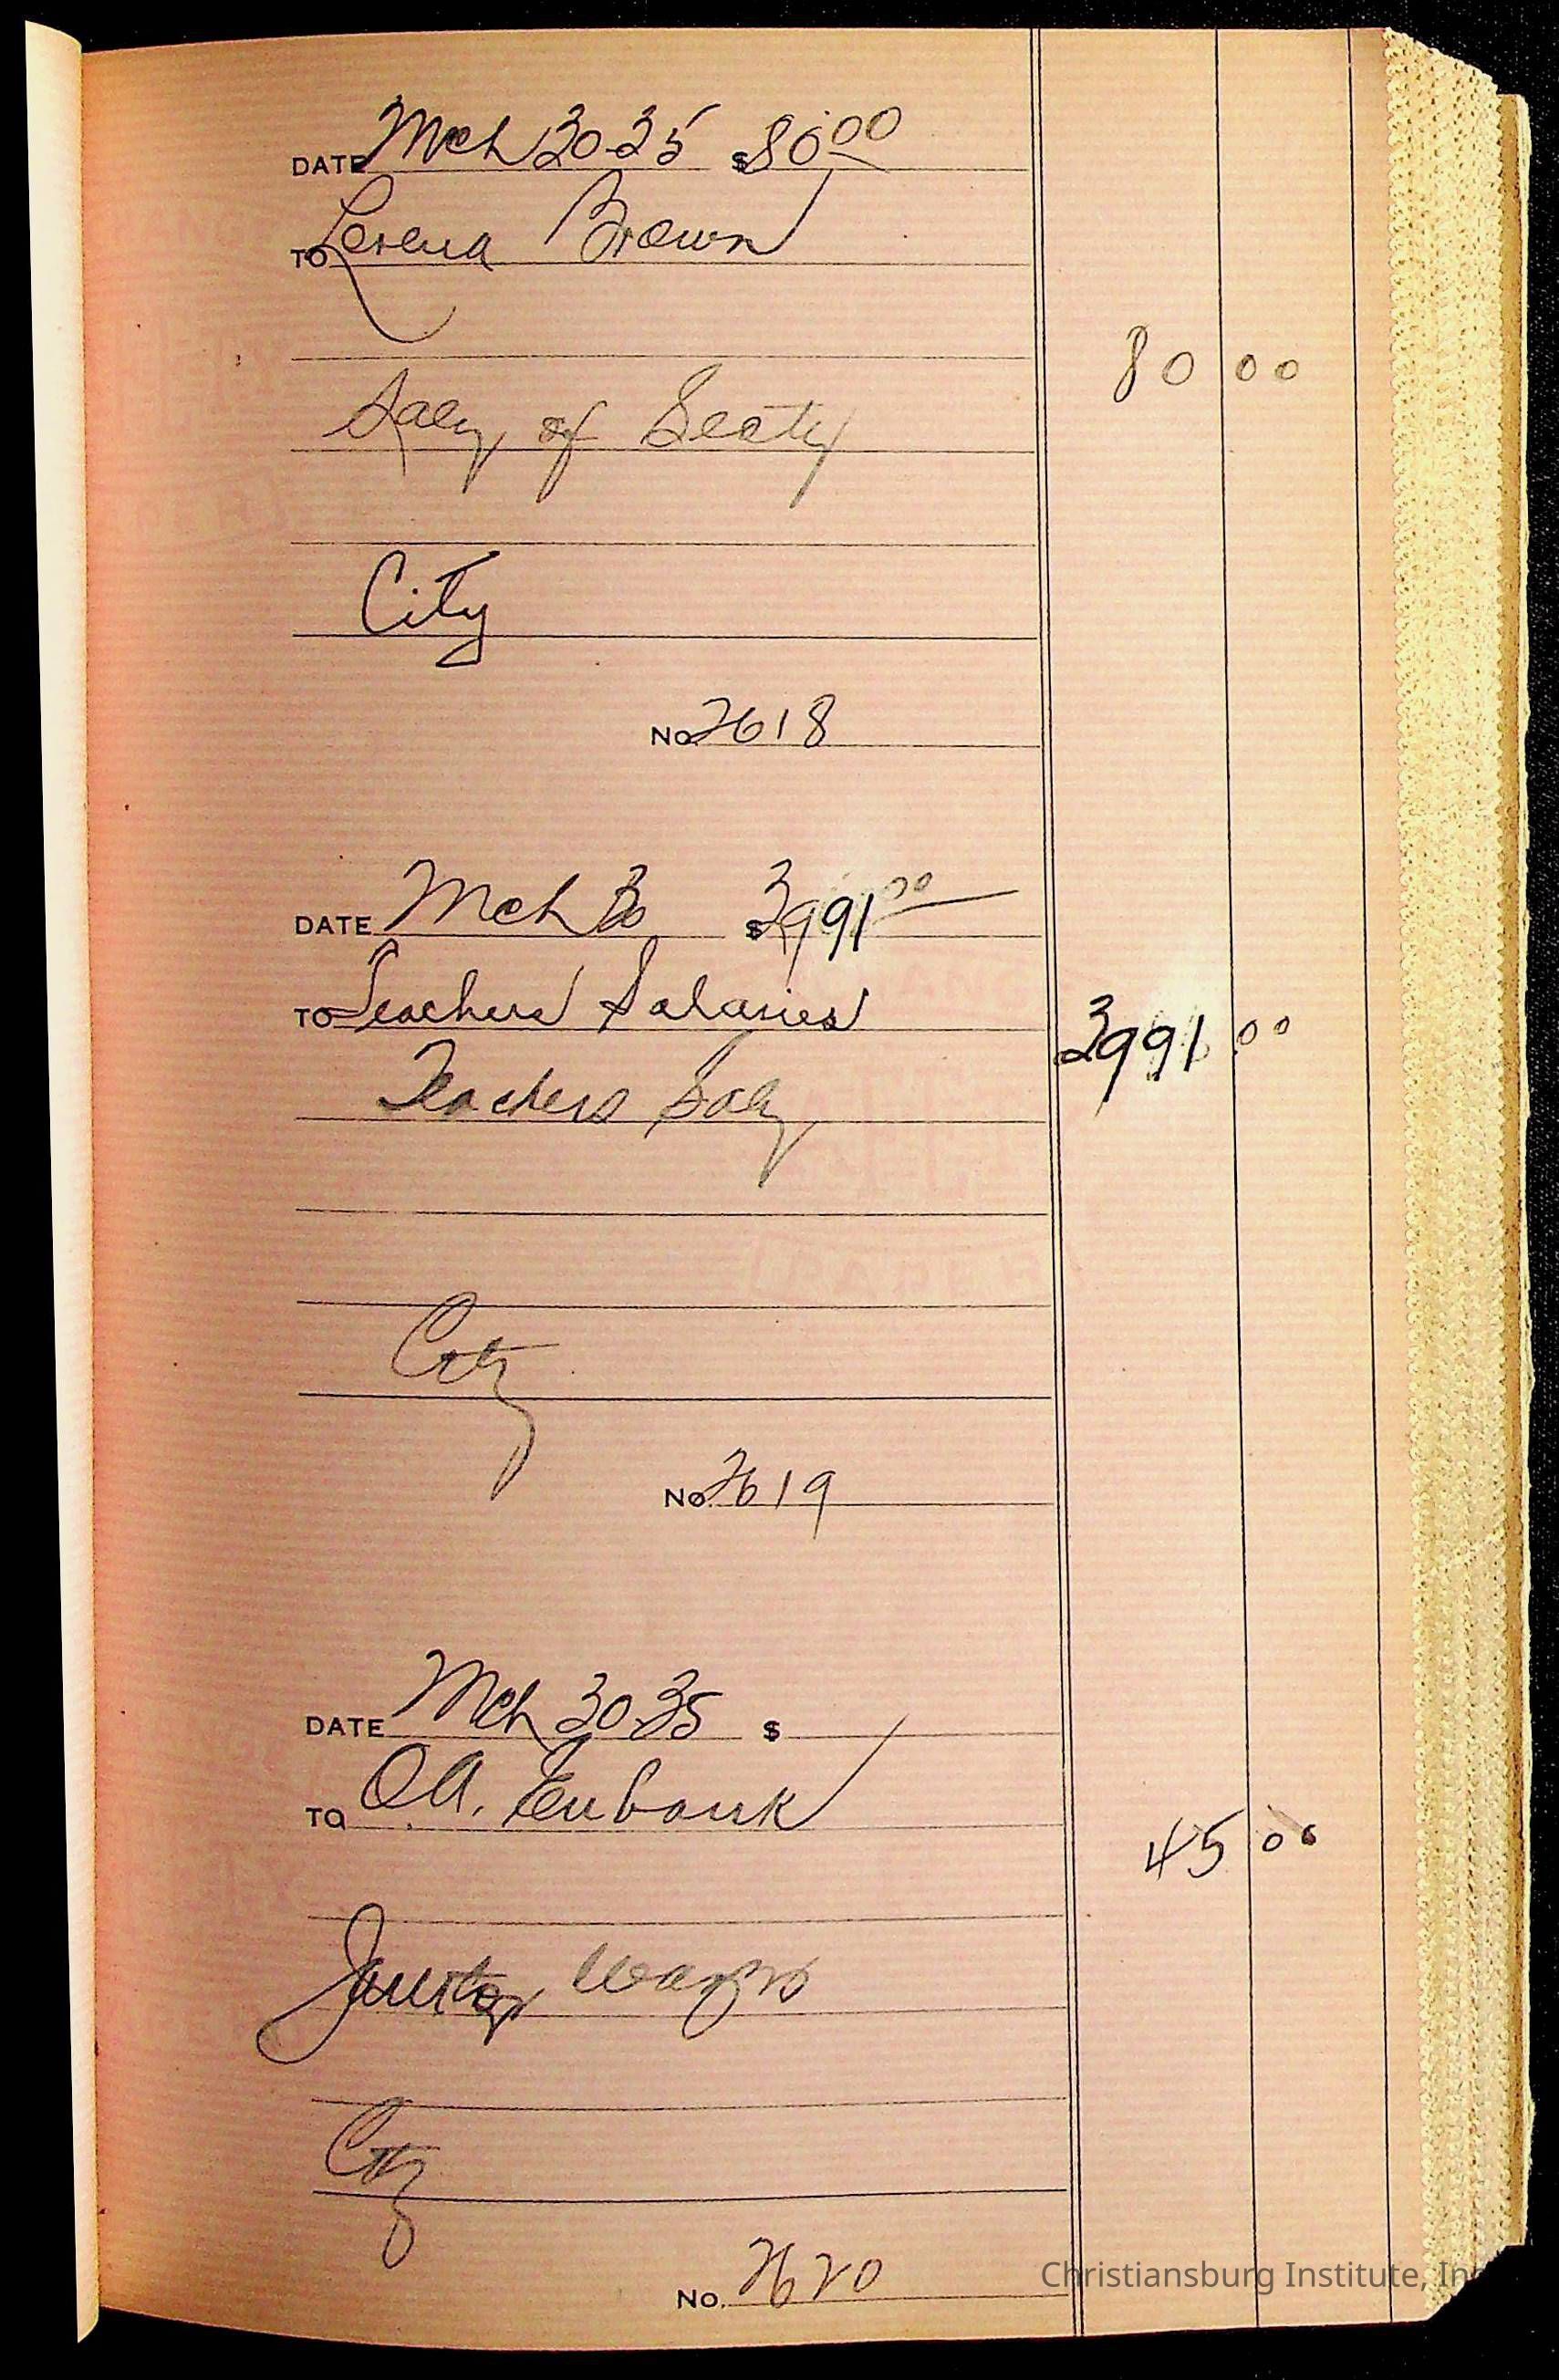 DATE Mch 30-35 $ 80 00
TO Lorena Brown
80 00
Saly of Secty
City
No. 2618
DATE Mch 30 $ 3991 00
TO Teachers Salaries
3991 00
Teachers Saly
City
No. 2619
DATE Mch 30-35 $
TO O.A. Eubank
45 00
Janitor Wages
City
No. 2620
Christiansburg Institute, Inc